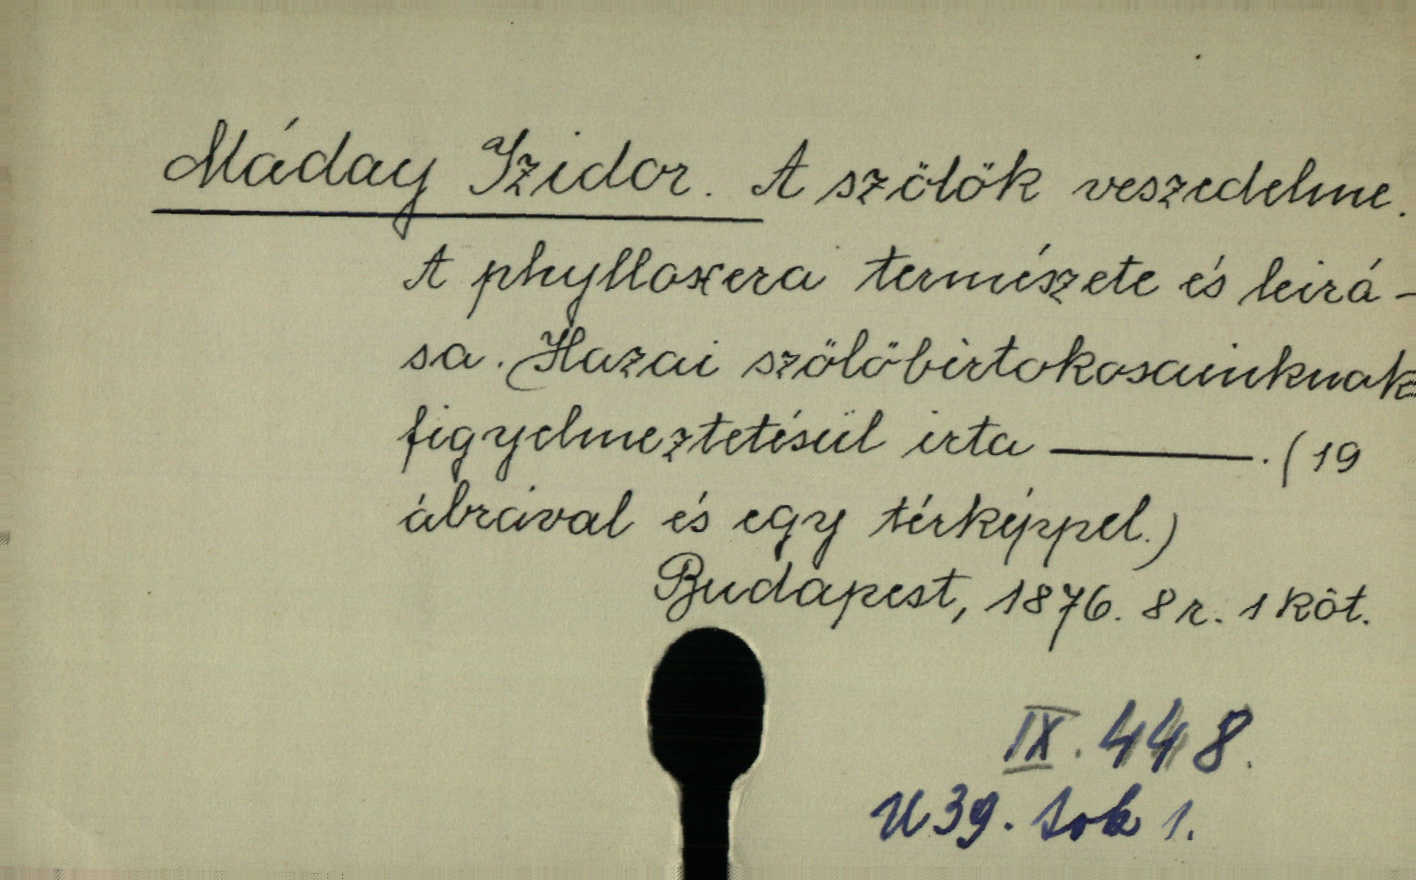 Máday Izidor. A szölök veszedelme.
A phylloxera természete és leirá-
sa. Hazai szölöbirtokosainknak
figyelmeztetésül irta ———. (19
ábrával és egy térképpel.)
Budapest, 1876. 8r. 1 köt.
IX. 448.
U39. sok 1.